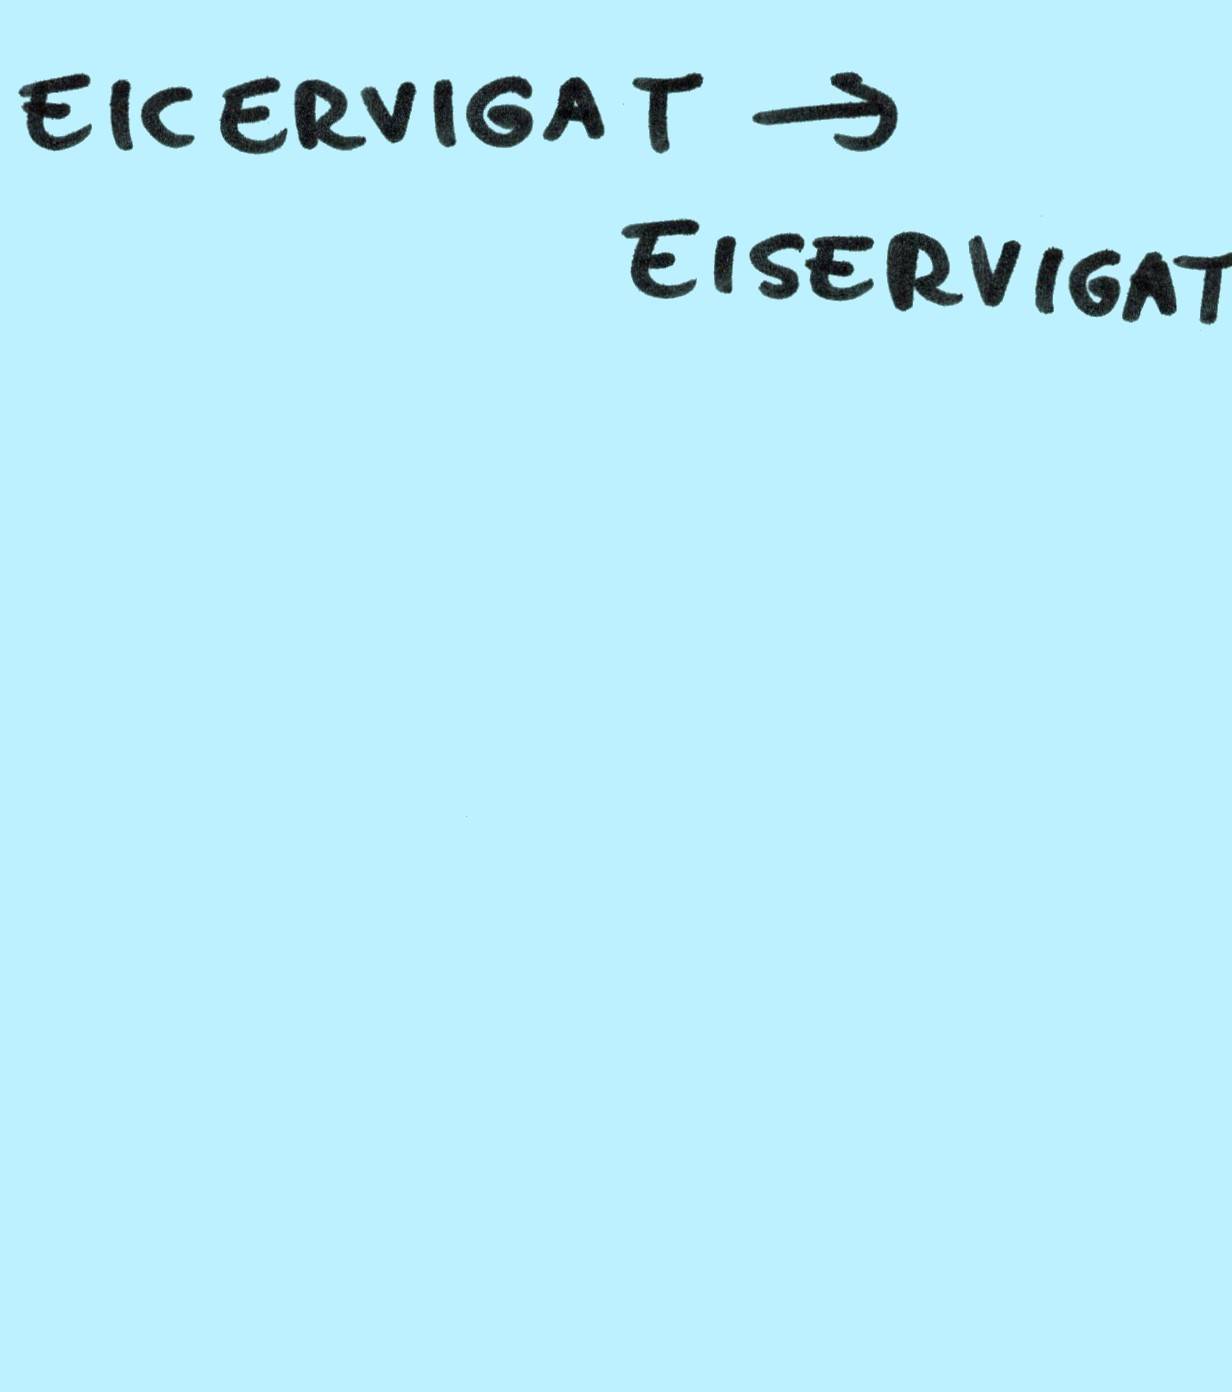 EICERVIGAT →
EISERVIGAT